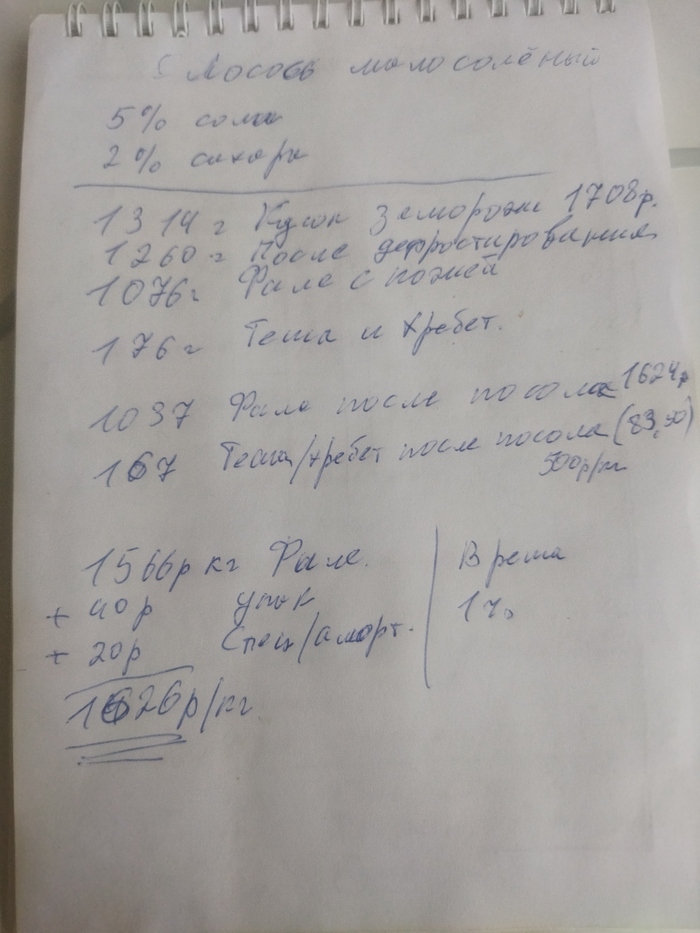 Лосось малосолёный
5% соли
2% сахара
1314 г Кусок заморозки 1708р.
1260 г После дефростирования
1076 г Филе с кожей
176 г Теша и хребет.
1037 Филе после посола 1624р
167 Теша/хребет после посола (83,50)
500р/кг
1566р кг Филе.
+ 40р упак
+ 20р Спец/аморт.
1626р/кг
Время
1ч.